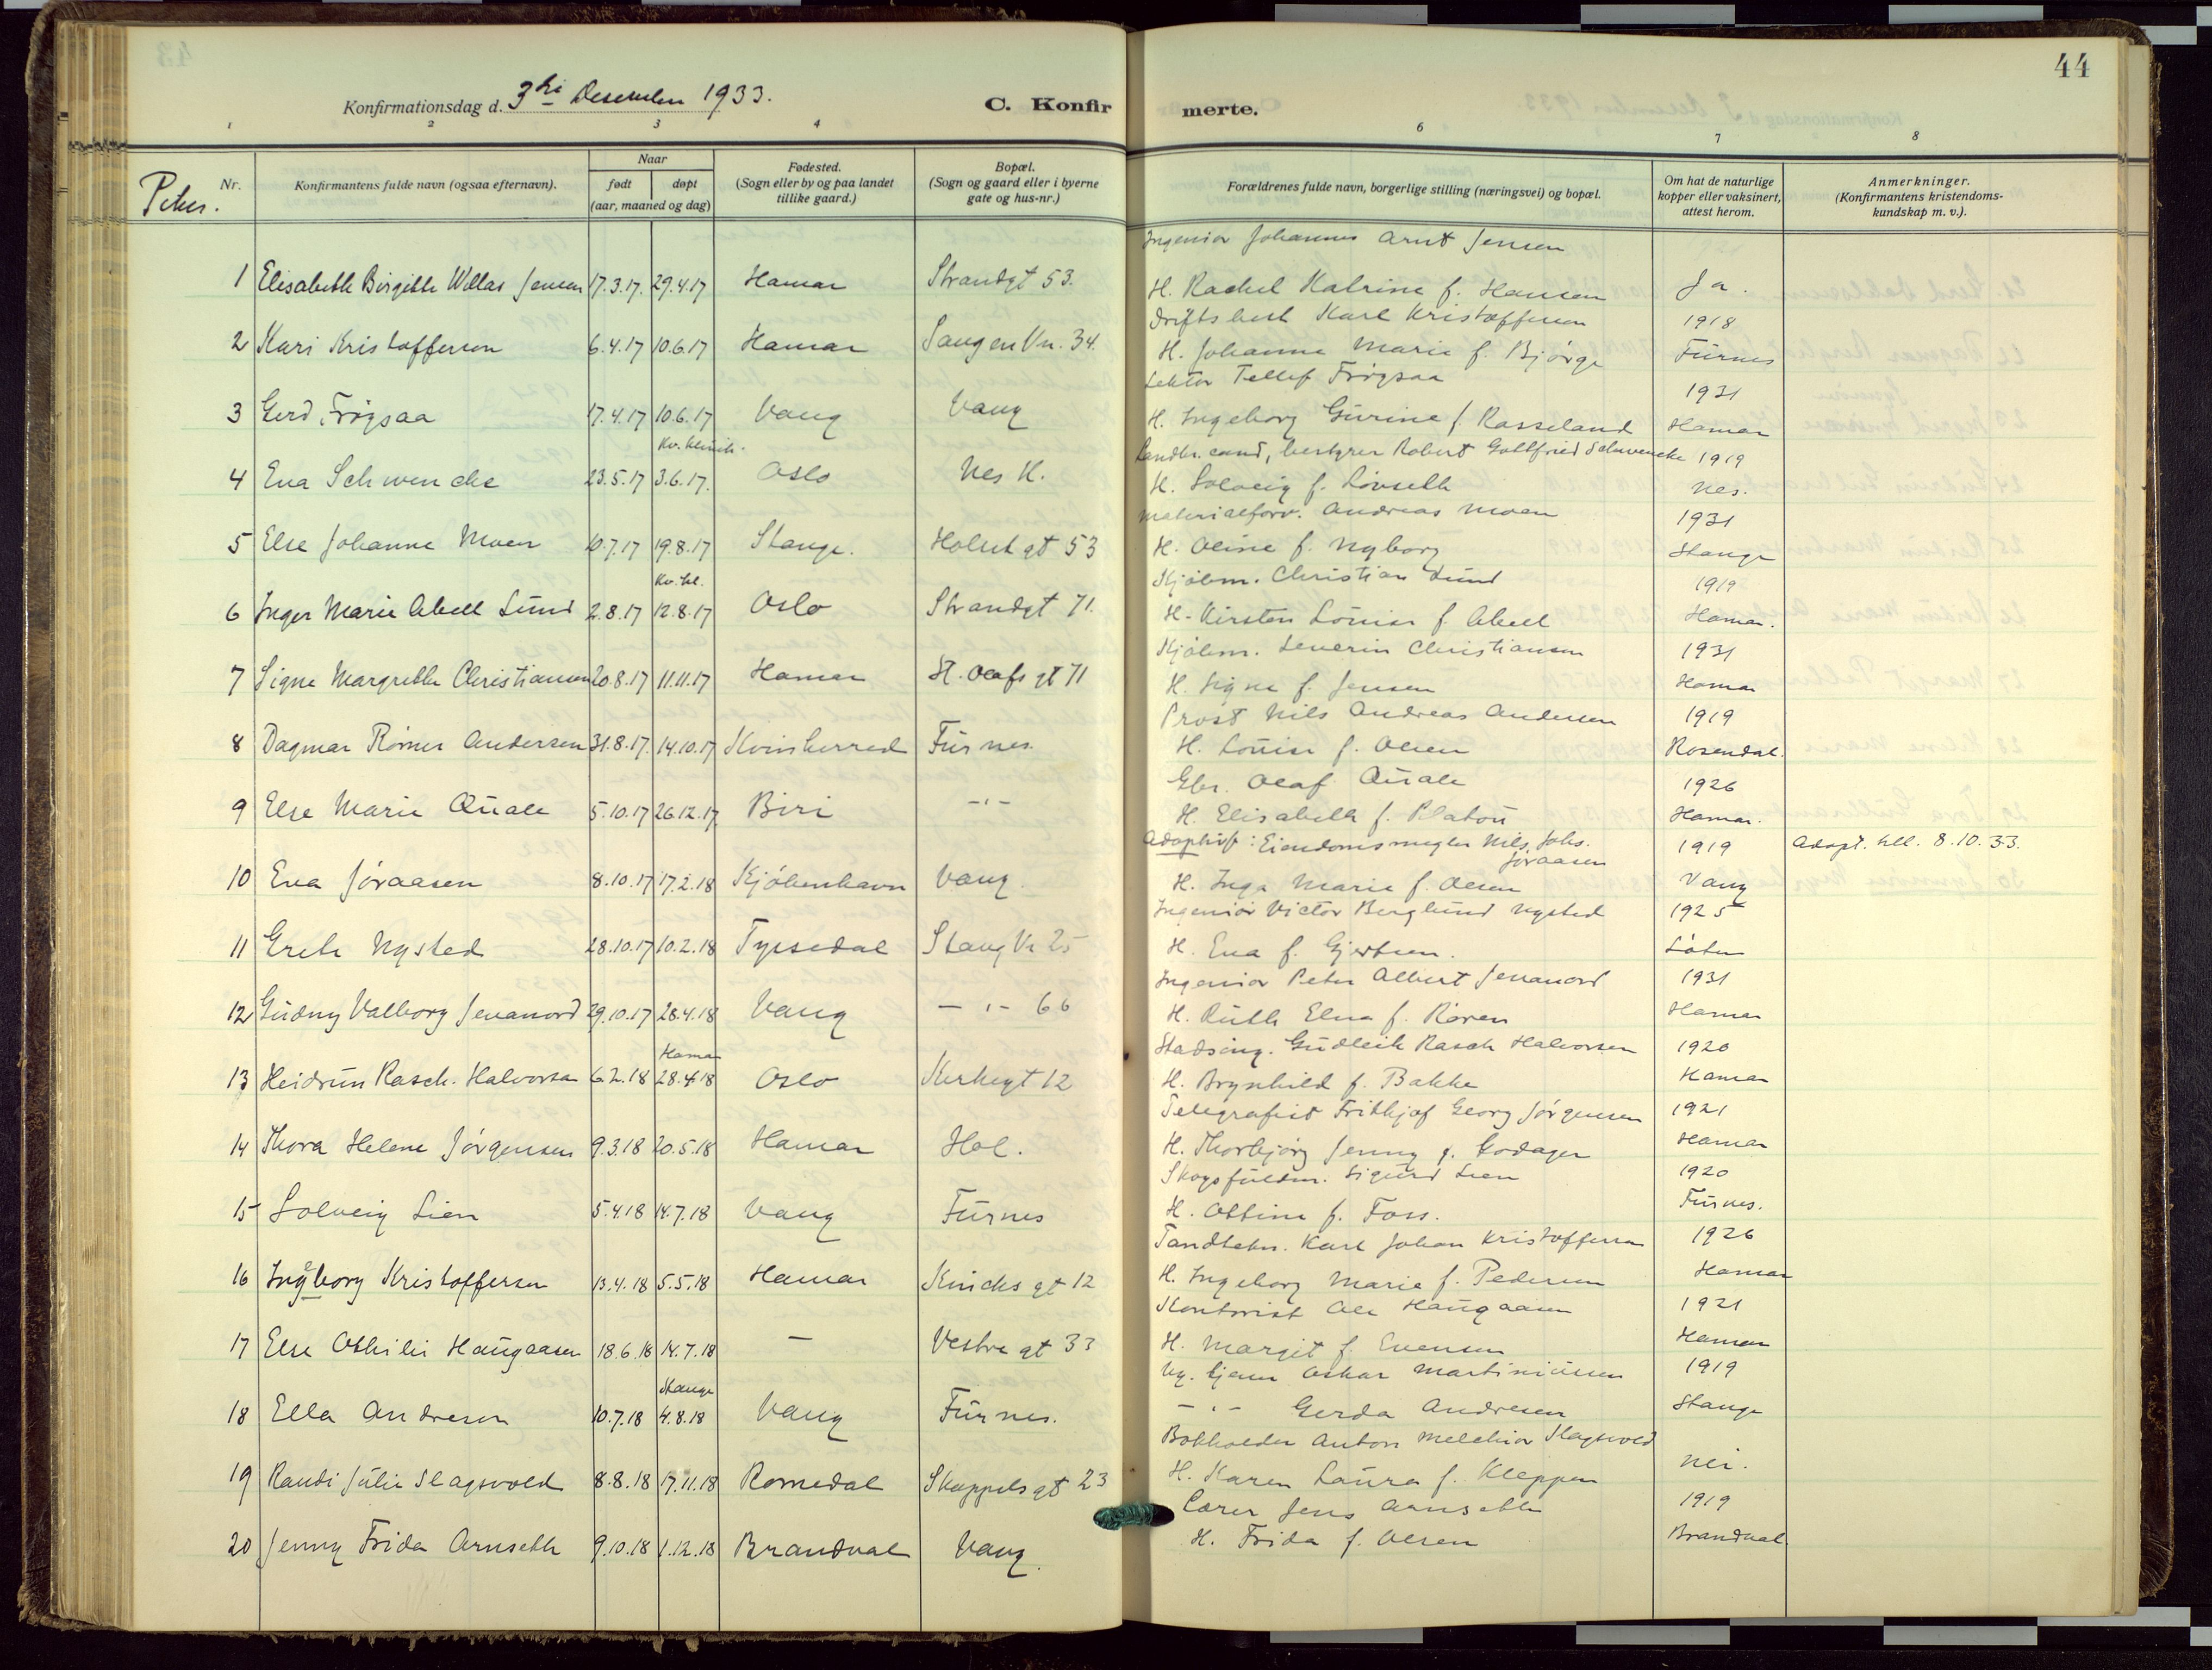 44
Konfirmationsdag d. 3die Desember 1933.
C. Konfirmerte.
1 2 3 4 6 7 8
Nr.
Konfirmantens fulde navn (ogsaa efternavn).
Naar
født
døpt
(aar, maaned og dag)
Fødested.
(Sogn eller by og paa landet
tillike gaard.)
Bopæl.
(Sogn og gaard eller i byerne
gate og hus-nr.)
Forældrenes fulde navn, borgerlige stilling (næringsvei) og bopæl.
Om hat de naturlige
kopper eller vaksinert,
attest herom.
Anmerkninger.
(Konfirmantens kristendoms-
kundskap m. v.).
Ingeniør Johannes Arnt Jensen
1 Elisabeth Birgitte Willas Jensen 17.3.17. 29.4.17 Hamar Strandgt 53. H. Rachel Katrine f. Hansen Ja.
Driftsbest Karl Kristoffersen 1918
2 Kari Kristoffersen 6.4.17 10.6.17 Hamar Vn. 34. H. Johanne Marie f. Bjørge Furnes
Lektor Tellef Frøysaa 1931
3 Gerd Frøysaa 17.4.17 10.6.17 Vang Vang H. Ingeborg Gurine f. Rasseland Hamar
Kv. klinik. Landbr. cand, bestyrer Robert Gottfried Schwencke 1919
4 Eva Schwencke 23.5.17 3.6.17. Oslo Nes H. H. Solveig f. Løvseth Nes.
Materialforv. Andreas Moen 1931
5 Else Johanne Moen 10.7.17 19.8.17 Stange. Holsetgt 53 H. Oline f. Nyborg Stange
Kv. kl. Kjøbm. Christian Lund 1919
6 Inger Marie Abell Lund 2.8.17 12.8.17 Oslo Strandgt 71. H. Kirsten Louise f. Abell Hamar.
Kjøbm. Severin Christiansen 1931
7 Signe Margrethe Christiansen 20.8.17 11.11.17 Hamar St. Olafs gt 71 H. Signe f. Jensen Hamar
Prost Nils Andreas Andersen 1919
8 Dagmar Rømer Andersen 31.8.17. 14.10.17 Kvinherred Furnes. H. Louise f. Olsen Rosendal.
Gbr. Olaf Quale 1926
9 Else Marie Quale 5.10.17 26.12.17 Biri -"- H. Elisabeth f. Platou Hamar.
Adoptivf: Eiendomsmegler Nils Johs. Jøraasen 1919 Adopt. bll. 8.10.33.
10 Eva Jøraasen 8.10.17 17.2.18 Kjøbenhavn Vang. H. Inga Marie f. Olsen Vang
Ingeniør Victor Berglund Nysted 1925
11 Grete Nysted 28.10.17 10.2.18 Tyssedal Stang V. 25 H. Eva f. Gjertsen. Løten
Ingeniør Peter Albert Jevanord 1931
12 Gudny Valborg Jevanord 29.10.17 28.4.18 Vang -"- 66 H. Ruth Elna f. Røren Hamar
Hamar Stadsing. Gudleik Rasch Halvorsen 1920
13 Heidrun Rasch. Halvorsen 6.2.18 28.4.18 Oslo Kirkegt 12 H. Brynhild f. Bakke Hamar
Telegrafist Frithjof Georg Jørgensen 1921
14 Thora Helene Jørgensen 9.3.18 20.5.18 Hamar Hol. H. Thorbjørg Jenny f. Godager Hamar
Skogsfuldm. Sigurd Lien 1920
15 Solveig Lien 5.4.18 14.7.18 Vang Furnes H. Ottine f. Foss. Furnes.
Tandtekn. Karl Johan Kristoffersen 1926
16 Ingeborg Kristoffersen 13.4.18 5.5.18 Hamar Kincks gt 12 H. Ingeborg Marie f. Pedersen Hamar
Kontorist Ole Haugaasen 1921
17 Else Othilie Haugaasen 18.6.18 14.7.18 - Vestre gt 33 H. Margit f. Evensen Hamar
Stange Ug. tjener Oskar Martiniussen 1919
18 Ella Andresen 10.7.18 4.8.18 Vang Furnes. -"- Gerda Andresen Stange
Bokholder Anton Melchior Slagsvold
19 Randi Julie Slagsvold 8.8.18 17.11.18 Romedal Skappelsgt 23 H. Karen Laura f. Kleppen nei.
Lærer Jens Arnseth 1919
20 Jenny Frida Arnseth 9.10.18 1.12.18 Brandval Vang. H. Frida f. Olsen Brandval.